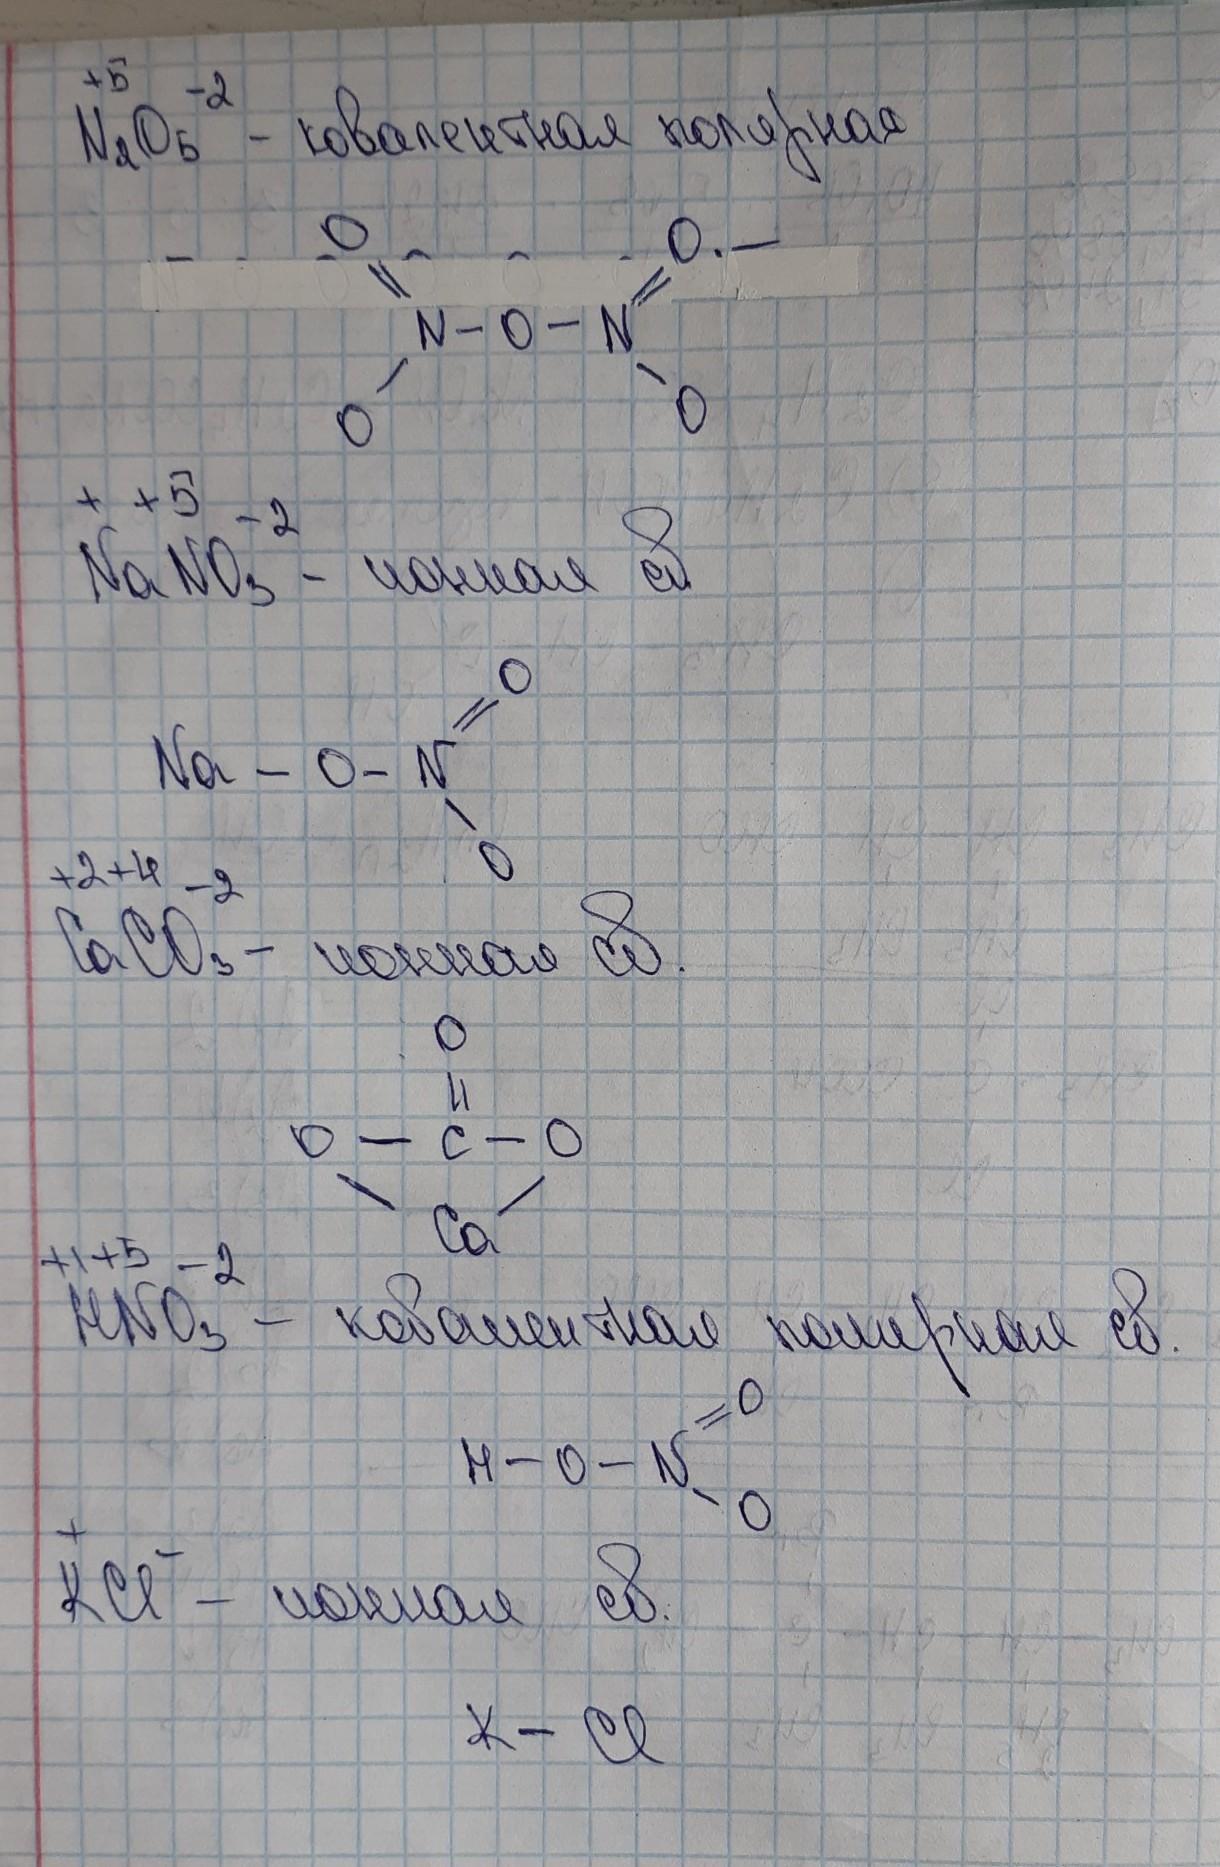 +5 -2
N2O5 - ковалентная полярная
O O.—
N - O - N
O O
+ +5 -2
NaNO3 - ионная св
O
Na - O - N
O
+2+4 -2
CaCO3 - ионная св.
O
O — C - O
Ca
+1+5 -2
HNO3 - ковалентная полярная св.
O
H - O - N
O
+ -
KCl - ионная св.
K - Cl